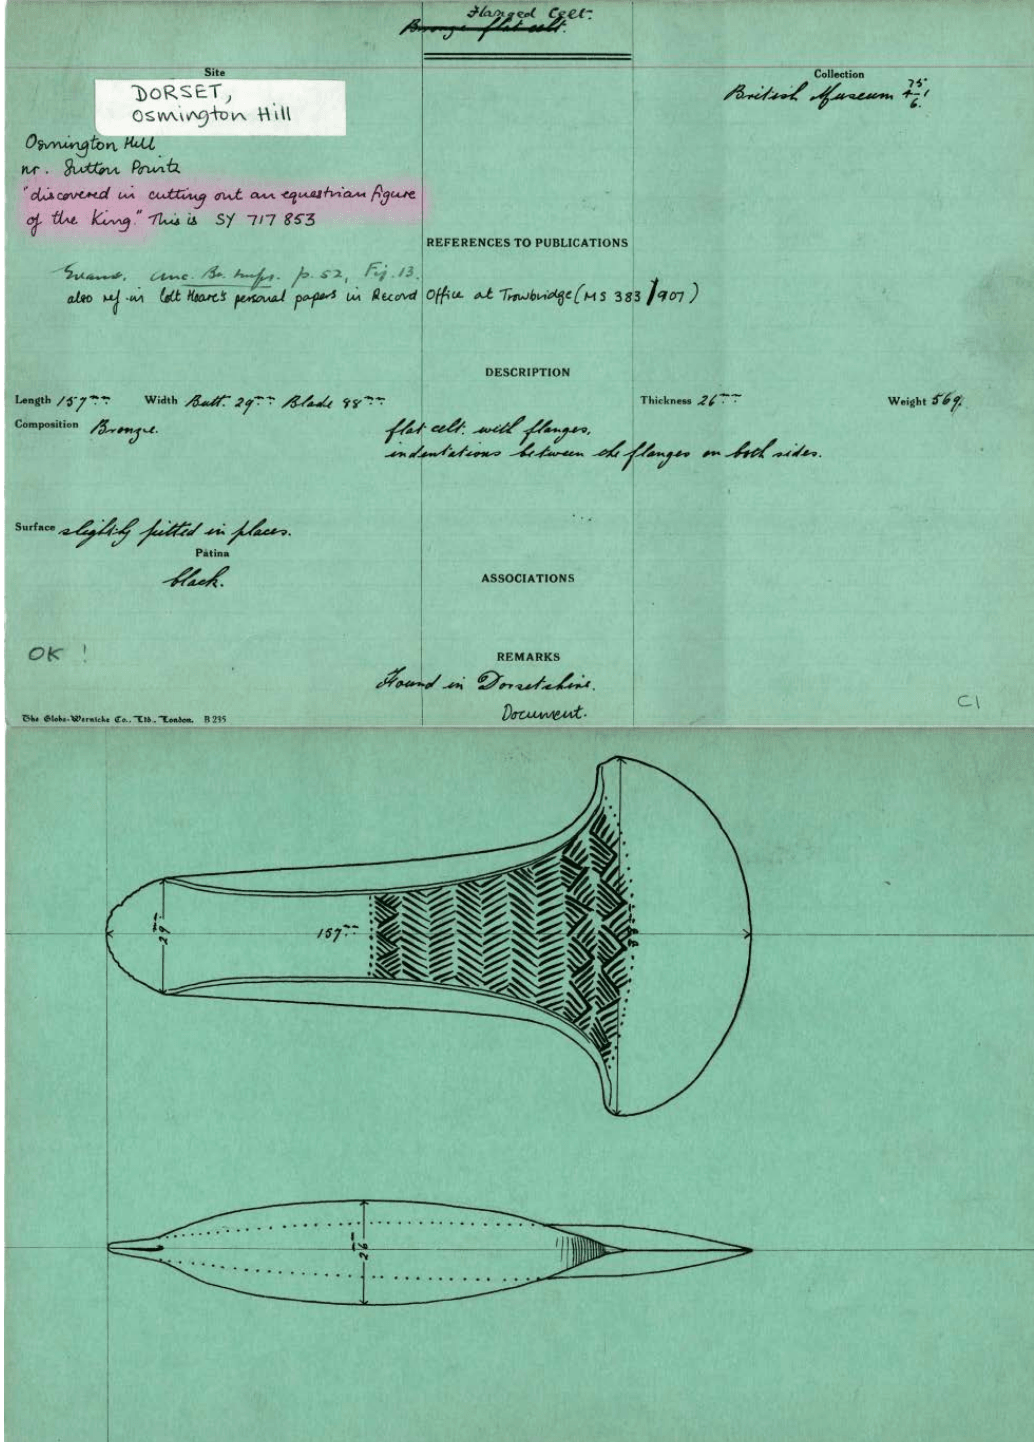 Flanged Celt.
Bronze flat celt.
Site
DORSET,
Osmington Hill
Collection
British Museum 75 4-1 6.
Osmington Hill
nr. Sutton Pointz
"discovered in cutting out an equestrian figure
of the King." This is SY 717 853
REFERENCES TO PUBLICATIONS
Evans. Anc. Br. Imps. p. 52, Fig. 13.
also ref. in Colt Hoare's personal papers in Record Office at Trowbridge (MS 383/907)
DESCRIPTION
Length 157mm Width Butt. 29mm Blade 88mm Thickness 26mm Weight 569.
Composition Bronze. flat celt. with flanges,
indentations between the flanges on both sides.
Surface slightly pitted in places.
Patina
black.
ASSOCIATIONS
OK !
REMARKS
Found in Dorsetshire.
Document.
C1
The Globe-Wernicke Co., Ltd., London. B 235
29mm
157mm
88
26mm